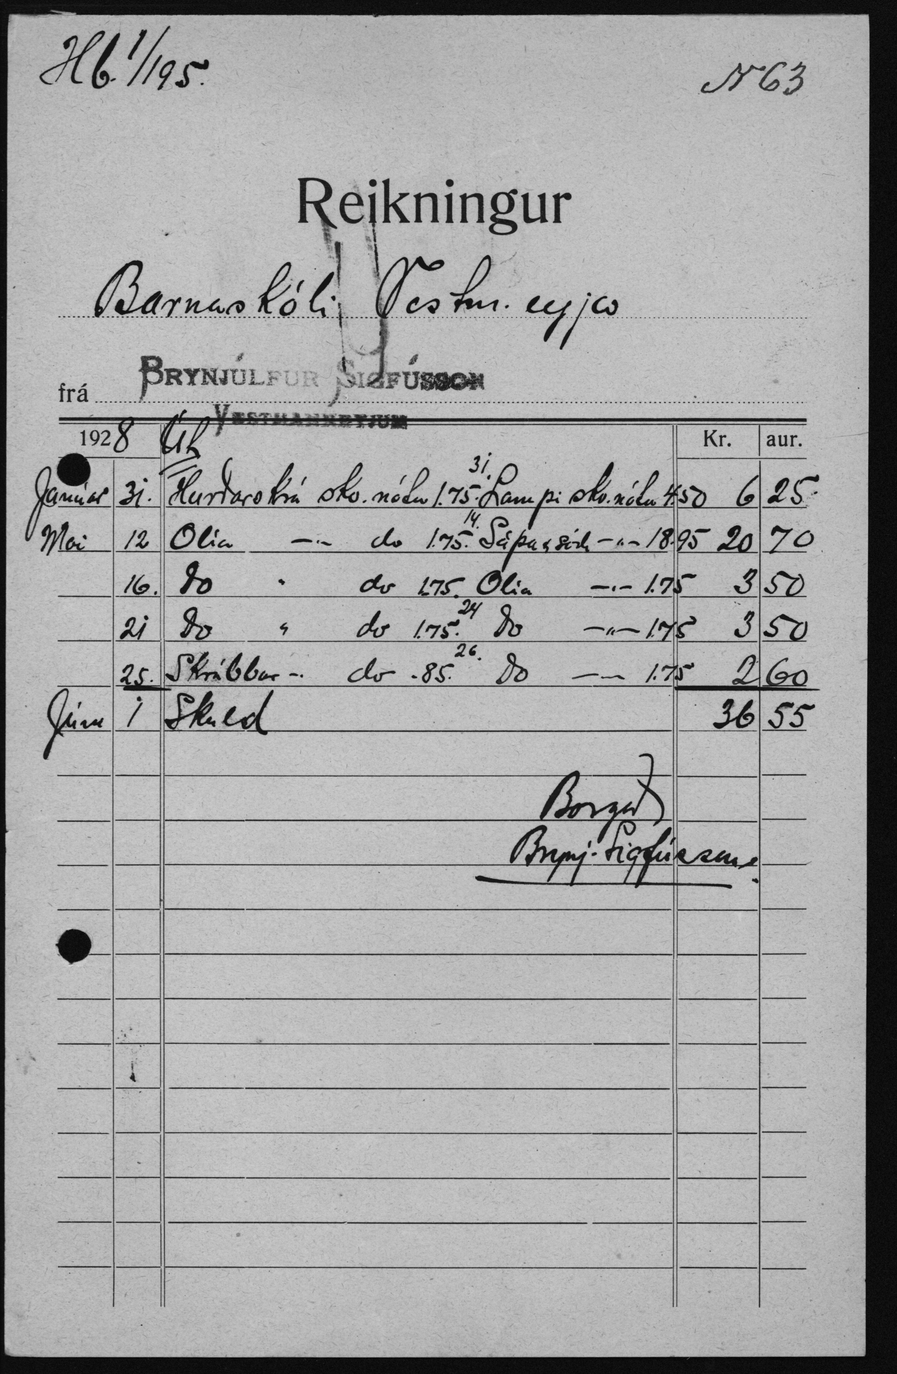 Hb. 1/195.
N 63
Reikningur
Barnaskóli Vestm. eyja
frá BRYNJÚLFUR SIGFÚSSON
VESTMANNEYJUM
1928 Út Kr. aur.
Janúar 31. Hurðarskrá skv. nótu 1.75. 31. Lampi skv. nótu 4.50 6 25
Mai 12 Olia -"- do 1.75. 14. Sápa -"- 18.95 20 70
16. do " do 1.75. Olia -"- 1.75 3 50
21 do " do 1.75. 24 do -"- 1.75 3 50
25. Skrubbur -"- do -85. 26. do -"- 1.75 2 60
Júni 1 Skuld 36 55
Borgað
Brynj. Sigfússon.